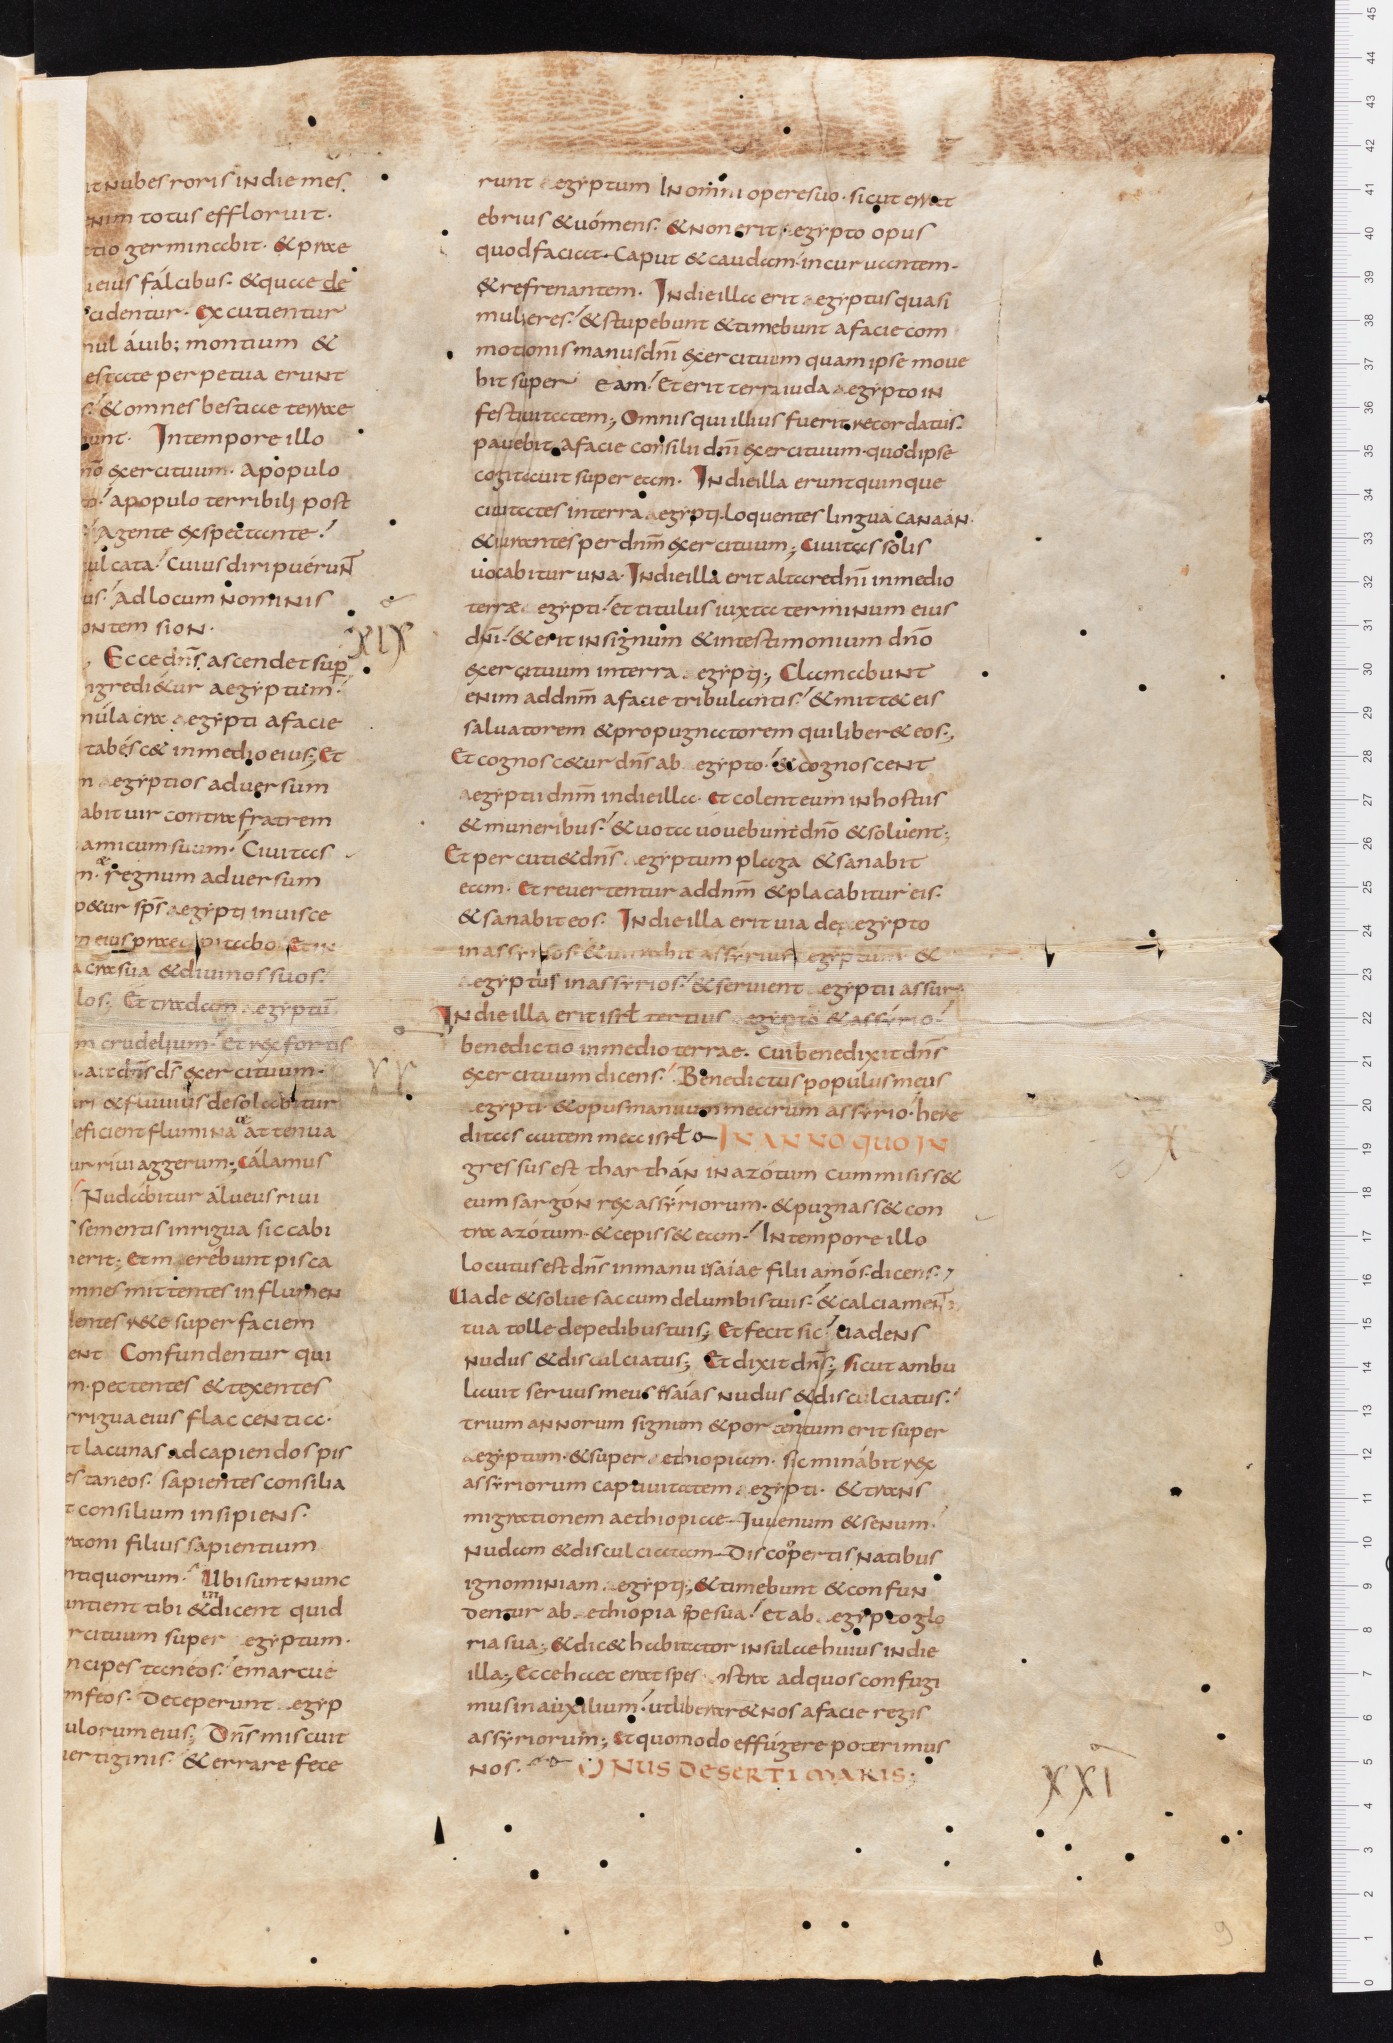 it nubes roris in die mes
enim totus effloruit.
tio germinabit. & prae
eius fálcibus. & quae de
cidentur. excutientur
mul áuib; montium &
estate perpetua erunt
& omnes bestiae terrae
unt. In tempore illo
no exercituum. a populo
a populo terribili post
Agente & spectante.
ulcata. Cuius diripuérunt
us. Ad locum nominis
ontem sion.
XIX
Ecce dñs ascendet sup
ngredi&ur aegÿptum.
mula cra aegÿpti a facie
tabésc& in medio eius; Et
aegÿptios adversum
abit uir contra fratrem
amicum suum. Ciuitas
regnum adversum
p&ur sps aegÿpti in uisce
eius praecipitabo Et in
acra sua & diuinos suos.
los. Et tradam egÿptū
m crudelium. et rex fortis
ait dñs ds exercituum.
ari & fluuius desolabitur
eficient flumina attenua
ur riui aggerum; Cálamus
Nudabitur álueus riui
sementis inrigua siccabi
erit; Et merebunt pisca
mnes mittentes in flumen
dentes rete super faciem
ent Confundentur qui
m. pectentes & texentes
rrigua eius flaccentia.
t lacunas ad capiendos pis
es taneos. sapientes consilia
t consilium insipiens.
raoni filius sapientium
ntiquorum. Ubi sunt nunc
untient tibi & indicent quid
rcituum super egÿptum.
ncipes tanéos. emarcue
mféos. Deceperunt egÿp
ulorum eius; Dñs miscuit
uertiginis. & errare fece
runt aegÿptum In omni opere suo. sicut errat
ebrius & uómens. & non erit aegÿpto opus
quod faciat. Caput & caudam. incuruantem.
& refrenantem. In die illa erit aegÿptus quasi
mulieres. & stupebunt & timebunt a facie com
motionis manus dñi exercituum quam ipse moue
bit super eam. Et erit terra iuda aegÿpto in
festiuitatem; Omnis qui illius fuerit recordatus.
pauebit a facie consilii dñi exercituum. quod ipse
cogitauit super eam. In die illa erunt quinque
ciuitates in terra aegÿpti. loquentes lingua canaán.
& iurantes per dnm exercituum; Ciuitas solis
uocabitur una. In die illa erit altare dñi in medio
terrae egÿpti. et titulus iuxta terminum eius
dñi. & erit in signum & in testimonium dño
exercituum in terra egÿpti; Clamabunt
enim ad dnm a facie tribulantis. & mitt& eis
saluatorem & propugnatorem qui liber& eos;
Et cognosc&ur dñs ab egÿpto. & cognoscent
aegÿptii dnm in die illa. Et colent eum in hostiis
& muneribus. & uota uouebunt dño & soluent;
Et percuti& dñs aegÿptum plaga & sanabit
eam. Et reuertentur ad dnm & placabitur eis.
& sanabit eos. In die illa erit uia de aegÿpto
in assÿrios. & intrabit assÿrius egÿptum &
aegÿptus in assÿrios. & seruient aegÿptii assur.
In die illa erit isrl tertius egÿpto & assÿrio.
XX
benedictio in medio terrae. cui benedixit dñs
exercituum dicens. Benedictus populus meus
aegÿpti & opus manuum mearum assÿrio. here
ditas autem mea isrl IN ANNO QUO IN
gressus est tharthán in azótum cum misiss&
eum sargón rex assÿriorum. & pugnass& con
tra azótum. & cepiss& eam. In tempore illo
locutus est dñs in manu isaiae filii amós. dicens.
Uade & solue saccum de lumbis tuis. & calciament
tua tolle de pedibus tuis; Et fecit sic uadens
nudus & disculciatus; Et dixit dñs; sicut ambu
lauit seruus meus isaías nudus & disculciatus.
trium annorum signum & portentum erit super
aegÿptum. & super aethiopiam. sic minábit rex
assÿriorum captiuitatem aegÿpti. & trans
migrationem aethiopiae. Iuuenum & senum.
nudam & disculciatam. Discopertis natibus
ignominiam aegÿpti; & timebunt & confun
dentur ab aethiopia spe sua. et ab aegÿpto glo
ria sua; & dic& habitator insulae huius in die
illa; Ecce haec erat spes nostra ad quos confugi
mus in auxilium. ut liberar& nos a facie regis
assÿriorum; et quomodo effúgere poterimus
nos. ONUS DESERTI MARIS;
XXI
9